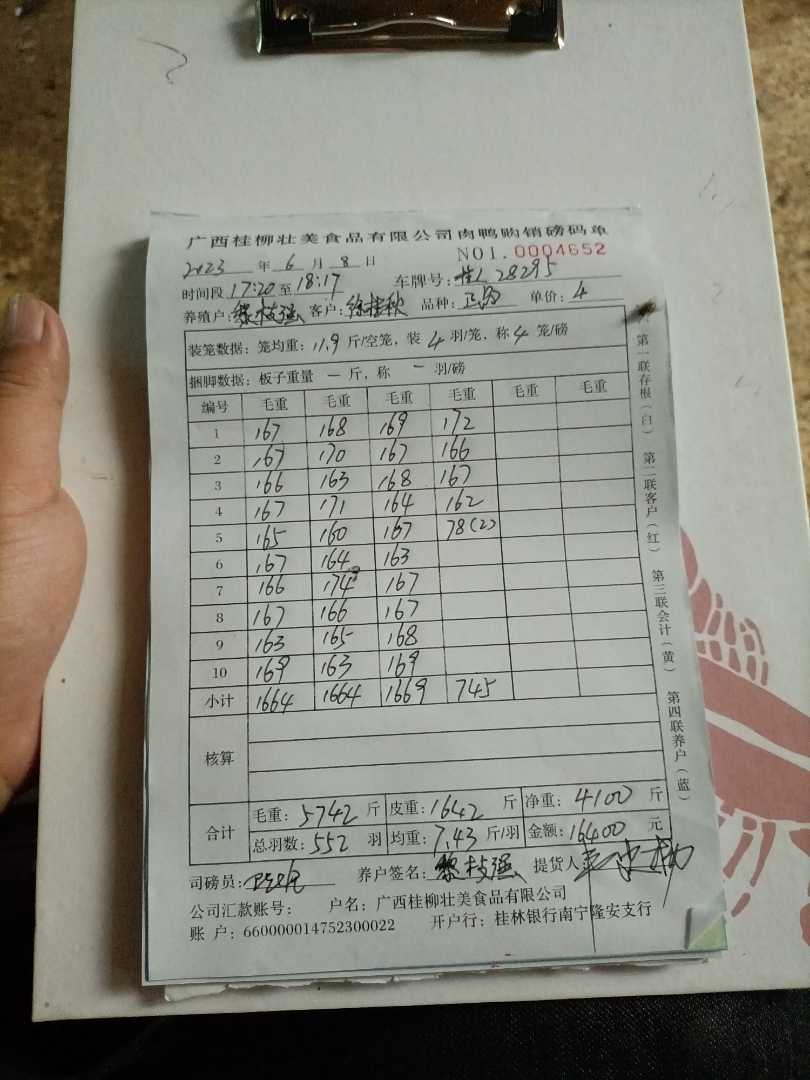 广西桂柳壮美食品有限公司肉鸭购销磅码单
NO1. 0004652
2023 年 6 月 8 日
车牌号: 桂L 28295
时间段 17:20 至 18:17
养殖户: 黎枝强 客户: 徐桂秋 品种: 正番 单价: 4
装笼数据: 笼均重: 11.9 斤/空笼, 装 4 羽/笼, 称 4 笼/磅
捆脚数据: 板子重量 一 斤, 称 一 羽/磅
编号 毛重 毛重 毛重 毛重 毛重 毛重
1 167 168 169 172
2 167 170 167 166
3 166 163 168 167
4 167 171 164 162
5 165 160 167 78(2)
6 167 164 163
7 166 174 167
8 167 166 167
9 163 165 168
10 169 163 169
小计 1664 1664 1669 745
核算
合计
毛重: 5742 斤 皮重: 1642 斤 净重: 4100 斤
总羽数: 552 羽 均重: 7.43 斤/羽 金额: 16400 元
司磅员: 养户签名: 黎枝强 提货人
公司汇款账号: 户名: 广西桂柳壮美食品有限公司
账 户: 660000014752300022 开户行: 桂林银行南宁隆安支行
第一联存根(白) 第二联客户(红) 第三联会计(黄) 第四联养户(蓝)